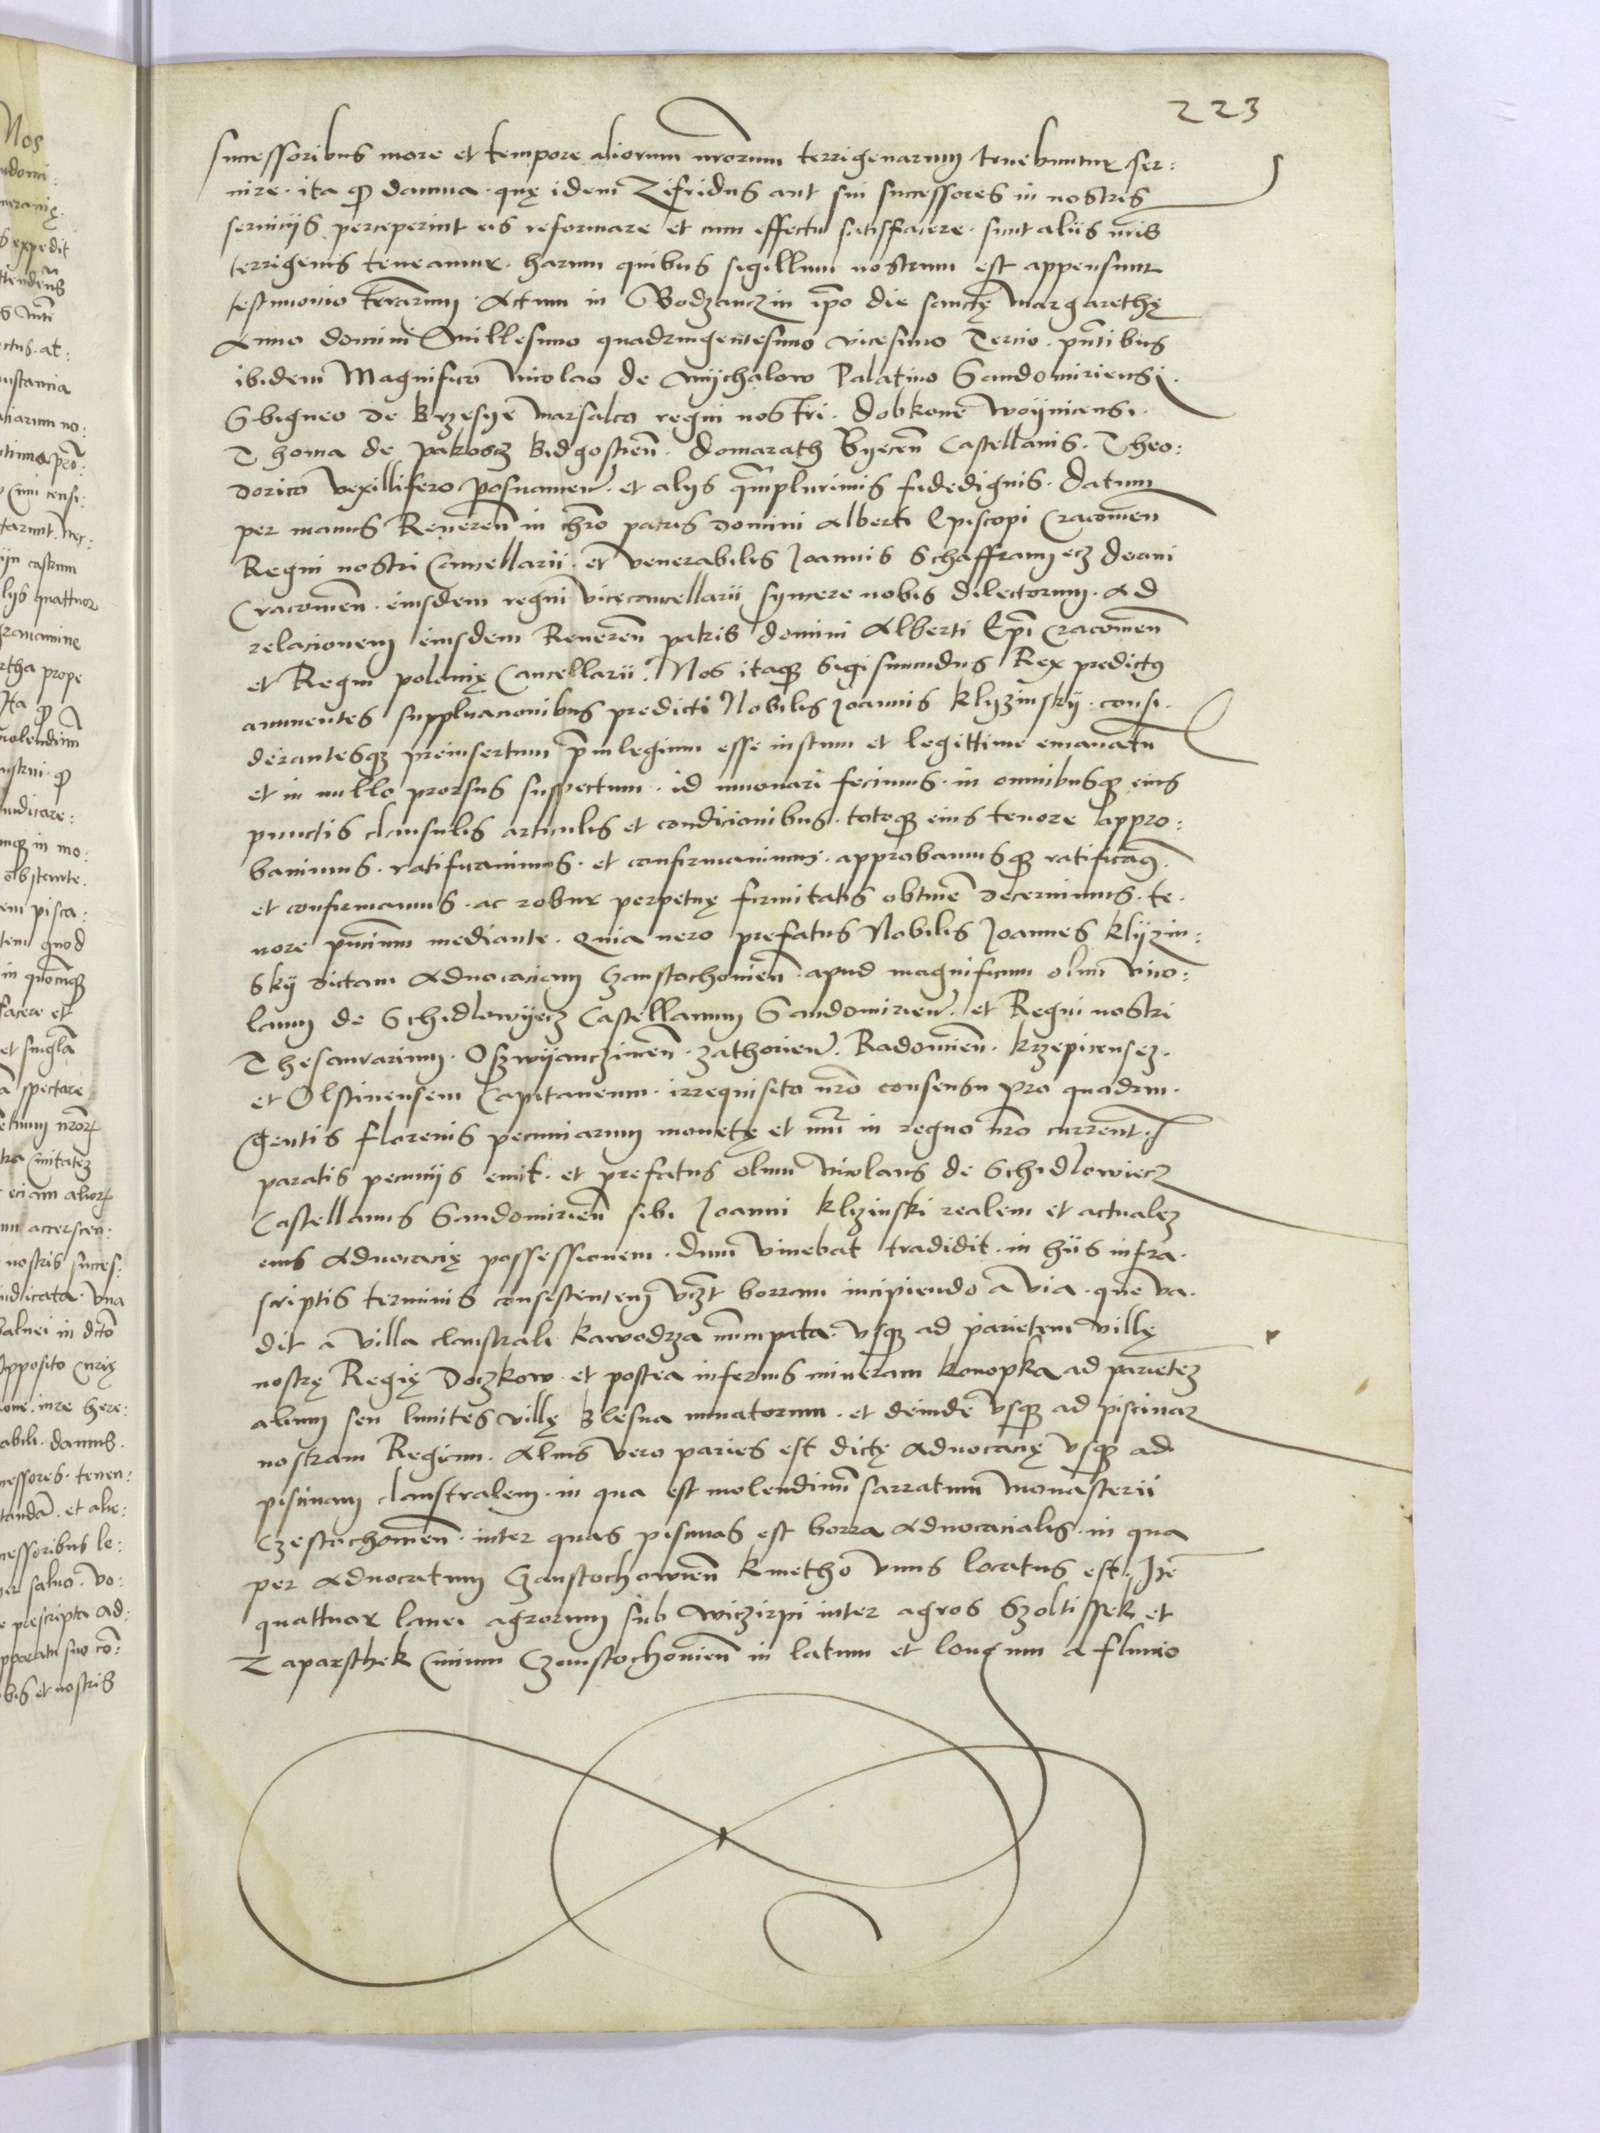 223
successoribus more et tempore aliorum nrorum terrigenarum tenebuntur ser:
nire. ita q damna. quę idem Zifridus aut sui successores in nostris
seruicijs perceperint eis reformare et cum effectu satisfacere. sicut aliis nris
terrigenis teneamur. harum quibus sigillum nostrum est appensum
testimonio trarum. Actum in Bodzanczin ipo die sanctę Margarethę
Anno domini Millesimo quadringentesimo vicesimo Tercio. pntibus
ibidem Magnifico Nicolao de Mijchalow Palatino Sandomiriensi.
Sbigneo de Brzesye Marsalco regni nostri. Dobkone Woijnicensi.
Thoma de Pakoscz Bidgostien. Domarath Byecen Castellanis. Theo:
dorico Vexillifero Posnanien. et alys qmplurimis fidedignis. Datum
per manus Reueren in chro patris domini Alberti Episcopi Cracouien
Regni nostri Cancellarii. et venerabilis Joannis Schaffranyecz Decani
Cracouien. eiusdem regni vicecancellarii syncere nobis dilectorum. Ad
relacionem eiusdem Reueren patris domini Alberti Epi Cracouien
et Regni polonię Cancellarii. Nos itaq Sigismundus Rex predictus
annuentes supplicacionibus predicti Nobilis Joannis Klyzinskij. consi.
derantesq preinsertum priuilegium esse iustum et legittime emanatu
et in nullo prorsus suspectum. id innouari fecimus. in omnibusq eius
punctis clausulis articulis et condicionibus. totoq eius tenore appro:
bauimus. ratificauimus. et confirmauimus. approbamusq ratificamus.
et confirmamus. ac robur perpetuę firmitatis obtinere decernimus. te.
nore pncium mediante. Quia vero prefatus Nobilis Joannes Klijzin:
skij dictam Aduocaciam Czanstochouien. apud magnificum olim Nico:
laum de Schidlowyecz Castellanum Sandomirien. et Regni nostri
Thesaurarium. Oszwijanczimen. Zathorien. Radomien. Krzepicensez.
et Olstinensem Capitaneum. irrequisito nro consensu pro quadrin.
gentis florenis pecuniarum monetę et nuri in regno nro current.
paratis pecunijs emit. et prefatus olim Nicolaus de Schidlowiecz
Castellanus Sandomirien sibi Joanni Klizinski realem et actualez
eius Aduocacię possessionem. dum viuebat tradidit. in hiis infra.
scriptis terminis consistentem vczt borram incipiendo a via. que va.
dit a villa claustrali Kawodza nuncupata. vsq ad parietem villę
nostrę Regię Doczkow. et postea inferius mineram Konopka ad parietez
alium seu limites villę Blesna minatorum. et deinde vsq ad piscinaz
nostram Regiam. Alius vero paries est dictę Aduocacię vsq ad
piscinam claustralem. in qua est molendinum sarratum Monasterii
Czestochouien. inter quas piscinas est borra Aduocacialis. in qua
per Aduocatum Czanstochowien Kmetho vnus locatus est. Ite
quattuor lanei agrorum sub Wiczirpi inter agros Szoltissek et
Zaparsthek Ciuium Czanstochouien in latum et longum a fluuio